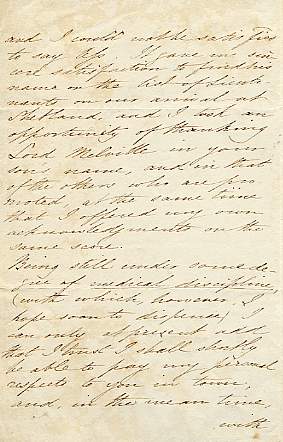 and I could not be satisfied
to say less. It gave me sin
cere satisfaction to find his
name on the list of lieute
nants on our arrival at
Shetland, and I took an
opportunity of thanking
Lord Melville in your
son's name, and in that
of the others who are pro
moted, at the same time
that I offered my own
acknowledgments on the
same score.
Being still under some de-
gree of medical discipline,
(with which, however, I
hope soon to dispense) I
can only at present add
that I trust I shall shortly
be able to pay my personal
respects to you in town,
and, in the mean time,
with